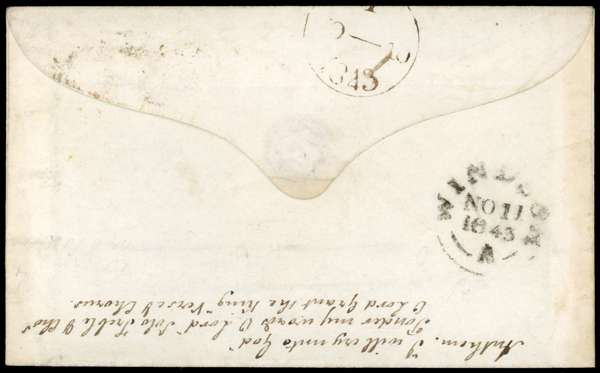 1843
WINDSOR
NO 11
1843
A
Anthem. I will cry unto God
Ponder my words O Lord Solo Treble & Chos
O Lord grant the King Verse & Chorus.